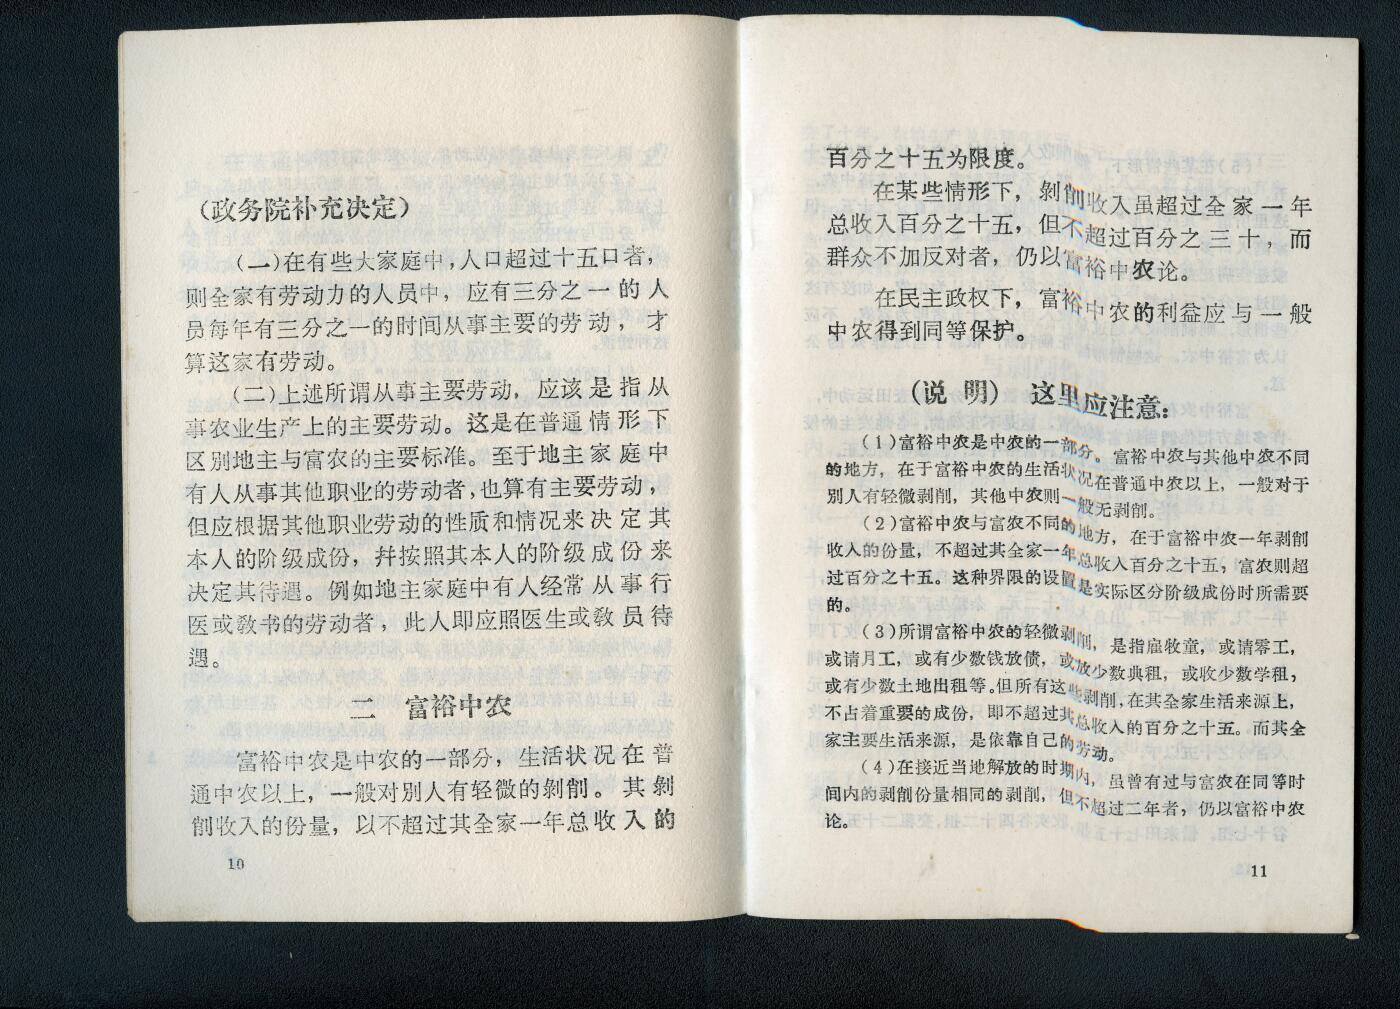 (政务院补充决定)
(一)在有些大家庭中,人口超过十五口者,
则全家有劳动力的人员中,应有三分之一的人
员每年有三分之一的时间从事主要的劳动,才
算这家有劳动。
(二)上述所谓从事主要劳动,应该是指从
事农业生产上的主要劳动。这是在普通情形下
区别地主与富农的主要标准。至于地主家庭中
有人从事其他职业的劳动者,也算有主要劳动,
但应根据其他职业劳动的性质和情况来决定其
本人的阶级成份,幷按照其本人的阶级成份来
决定其待遇。例如地主家庭中有人经常从事行
医或敎书的劳动者,此人即应照医生或敎员待
遇。
二 富裕中农
富裕中农是中农的一部分,生活状况在普
通中农以上,一般对别人有轻微的剝削。其剝
削收入的份量,以不超过其全家一年总收入的
10
百分之十五为限度。
在某些情形下,剝削收入虽超过全家一年
总收入百分之十五,但不超过百分之三十,而
群众不加反对者,仍以富裕中农论。
在民主政权下,富裕中农的利益应与一般
中农得到同等保护。
(说明) 这里应注意:
(1)富裕中农是中农的一部分。富裕中农与其他中农不同
的地方,在于富裕中农的生活状况在普通中农以上,一般对于
别人有轻微剝削,其他中农则一般无剝削。
(2)富裕中农与富农不同的地方,在于富裕中农一年剝削
收入的份量,不超过其全家一年总收入百分之十五,富农则超
过百分之十五。这种界限的设置是实际区分阶级成份时所需要
的。
(3)所谓富裕中农的轻微剝削,是指雇牧童,或请零工,
或请月工,或有少数钱放债,或放少数典租,或收少数学租,
或有少数土地出租等。但所有这些剝削,在其全家生活来源上,
不占着重要的成份,即不超过其总收入的百分之十五。而其全
家主要生活来源,是依靠自己的劳动。
(4)在接近当地解放的时期内,虽曾有过与富农在同等时
间内的剝削份量相同的剝削,但不超过二年者,仍以富裕中农
论。
11